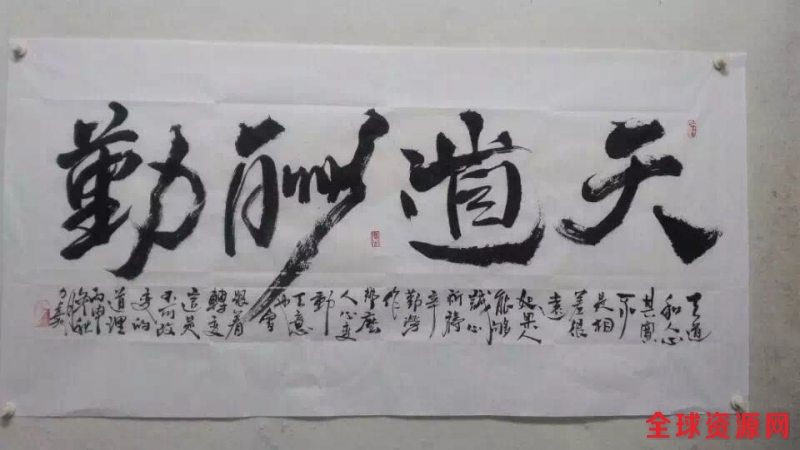 天道酬勤
天道
和人心
其實
不
是相
差很
遠
如果人
能够
誠心
祈禱
辛
勤勞
作
那麼
人心变
動
天意
也會
跟着
轉变
這是
不可改
变的
道理
丙申
晚秋
全球资源网